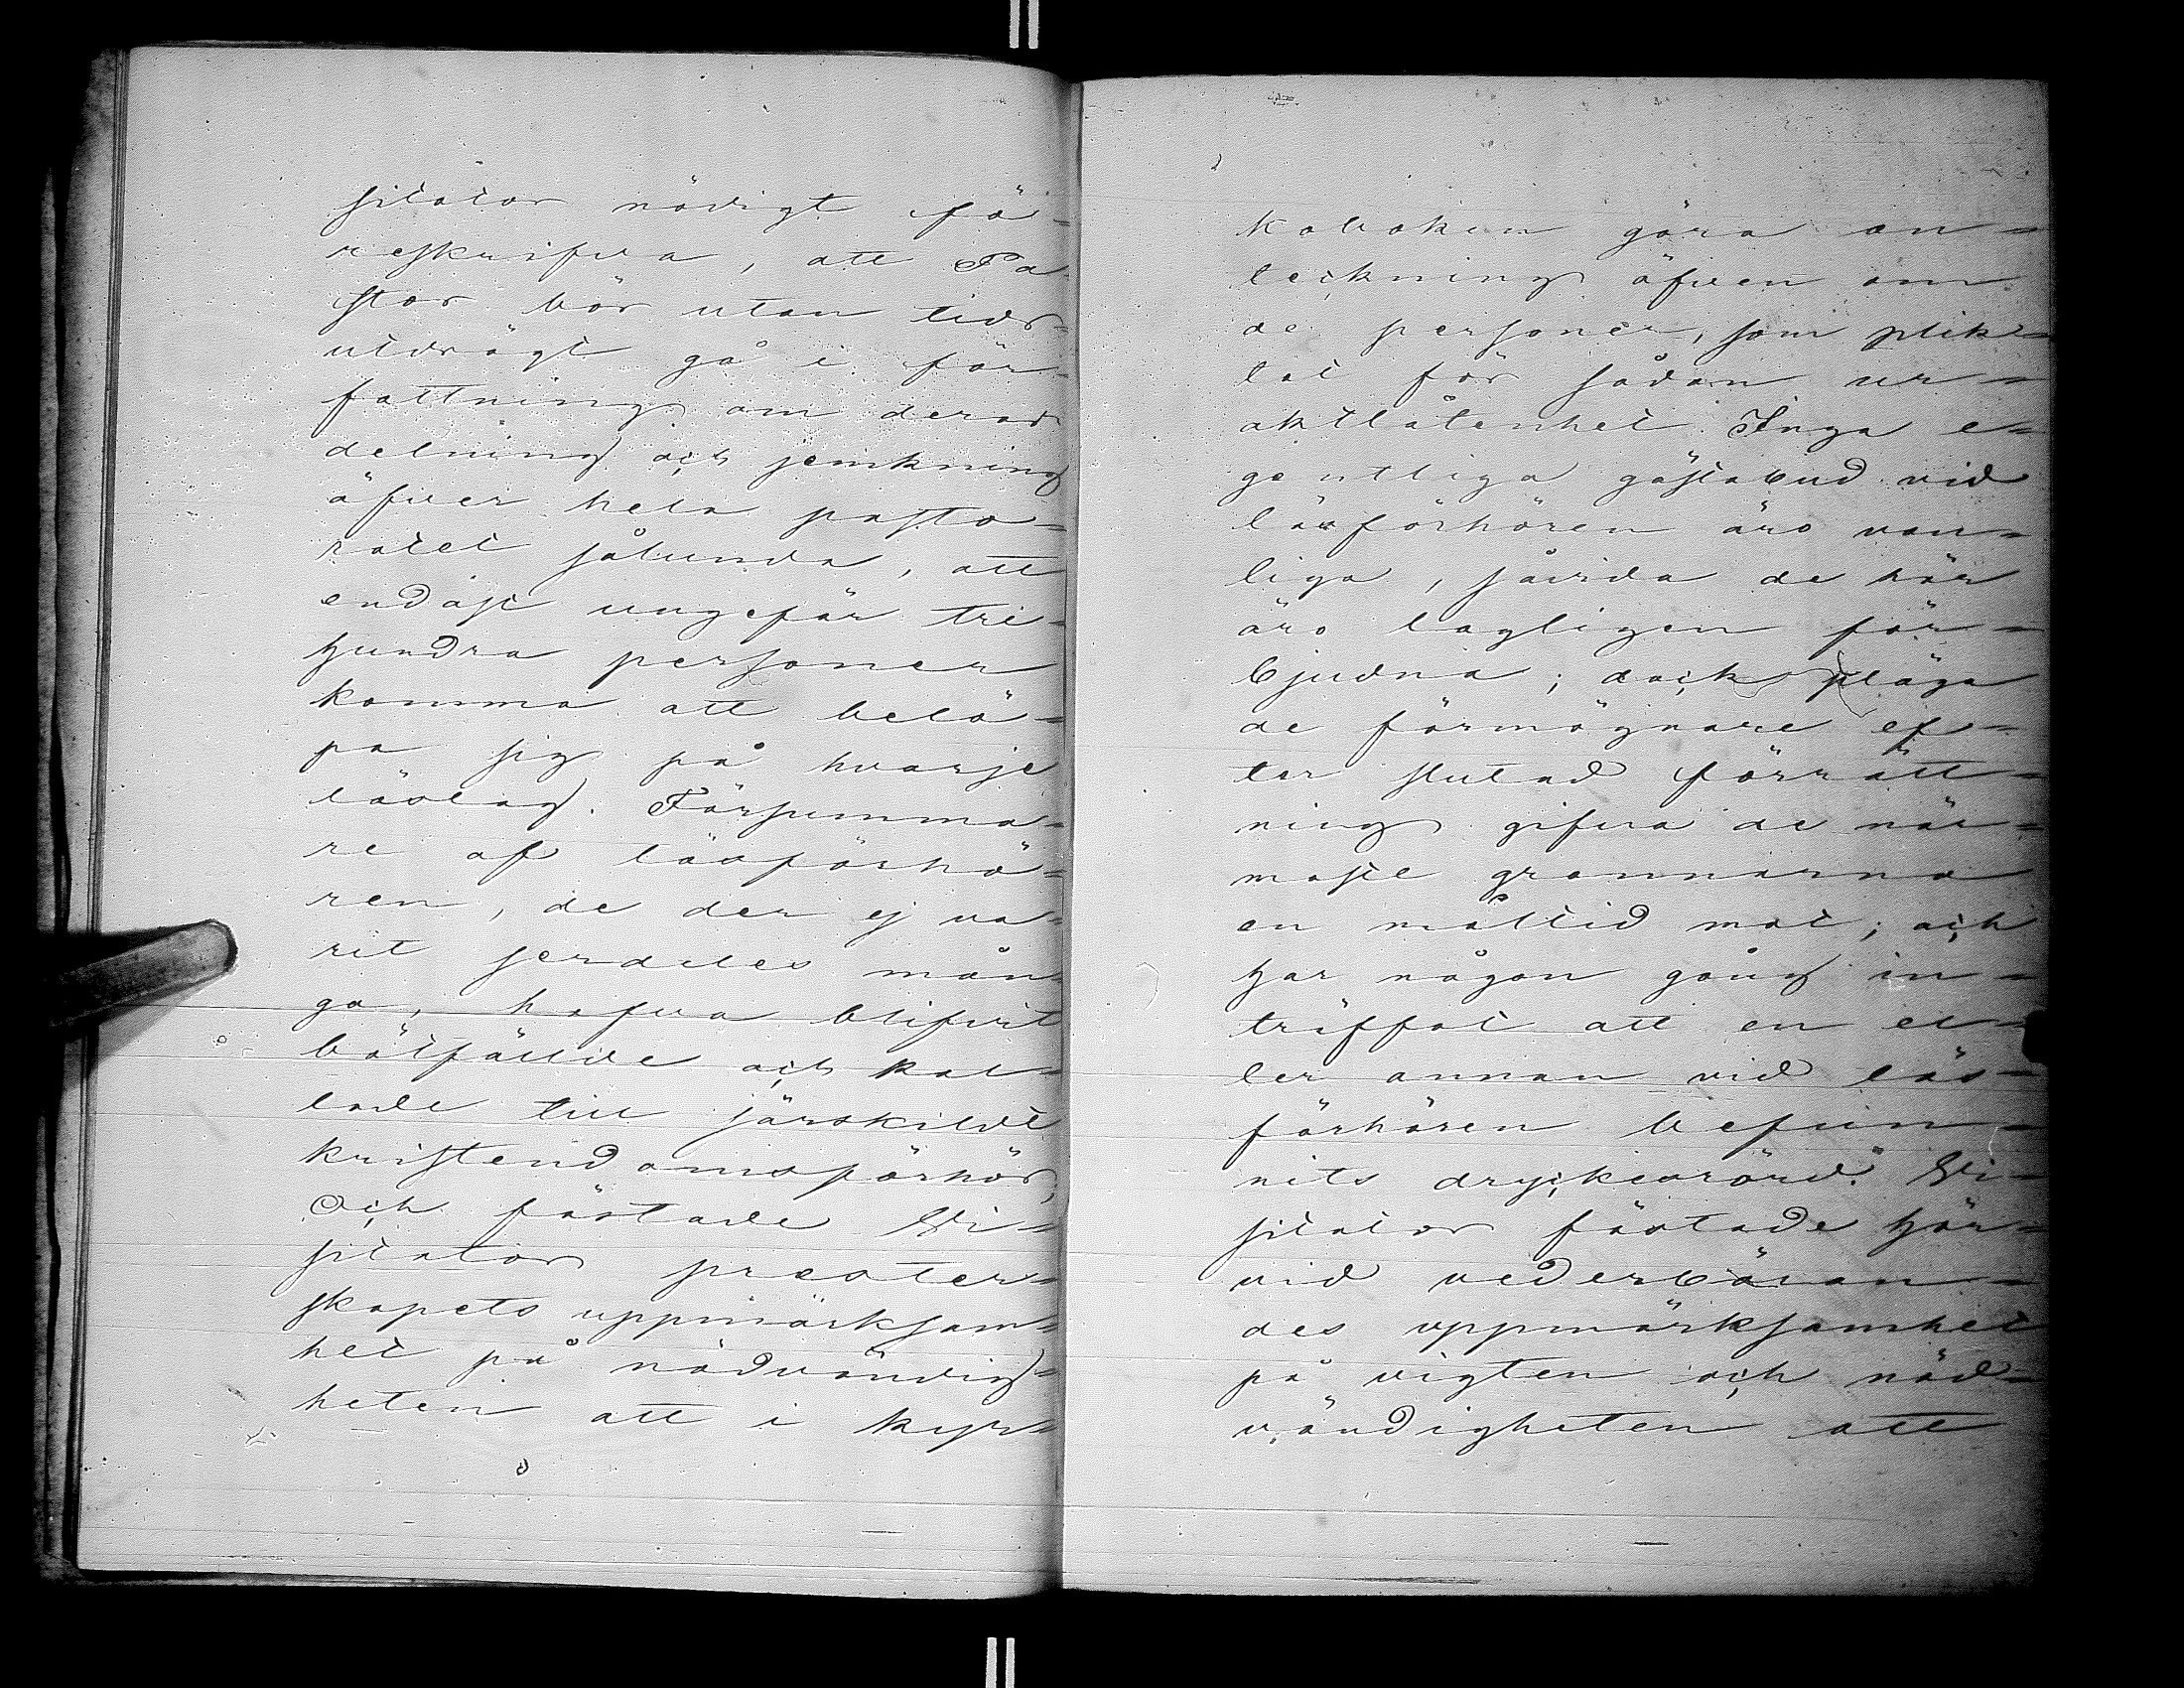 sitator nödigt fö-
reskrifva, att Pa-
stor bör utan tids-
utdrägt gå i för-
fattning om deras
delning och jemkning
öfver hela pasto-
ratet sålunda, att
endast ungefär tre-
hundra personer
komma att belö-
pa sig på hvarje
läslag. Försumma-
re af läsförhö-
ren, de der ej va-
rit serdeles mån-
ga, hafva blifvit
bötfällde och kal-
lade till särskildt
kristendomsförhör,
Och fästade Vi-
sitator prester-
skapets uppmärksam-
het på nödvändig-
heten att i kyr-
koboken göra an-
teckning äfven om
de personer, som plik-
tat för sådan ur-
aktlåtenhet. Inga e-
gentliga gästabud vid
läsförhören äro van-
liga, såvida de här
äro lagligen för-
bjudna; dock pläga
de förmögnare ef-
ter slutad förrätt-
ning gifva de när-
maste grannarna
en måltid mat; och
har någon gång in-
träffat att en el-
ler annan vid läs-
förhören befun-
nits dryckesrörd. Vi-
sitator fästade här-
vid vederböran-
des uppmärksamhet
på vigten och nöd-
vändigheten att